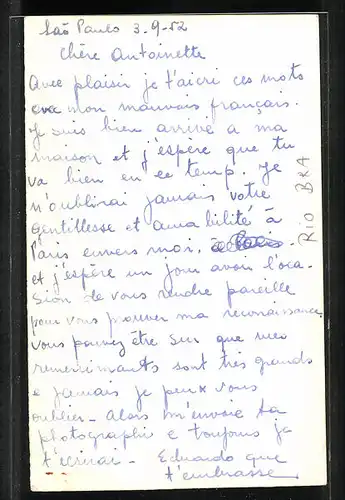 São Paulo 3-9-52
Chère Antoinette
Avec plaisir je t'aicri ces mots
avec mon mauvais français.
Je suis bien arrivé a ma
maison et j'espère que tu
va bien en ce temp. Je
n'oublirai jamais votre
gentillesse et amabilité à
Paris envers moi.
et j'espère un jour avoir l'oca
sion de vous rendre pareille
pour vous prouver ma reconnaissance
Vous pouvez être sur que mes
remerssimants sont très grands
e jamais je peux vous
oublier - Alors m'envoie ta
photographie e toujours ja
t'écrirai - Eduardo que
t'embrasse
RIO BRA